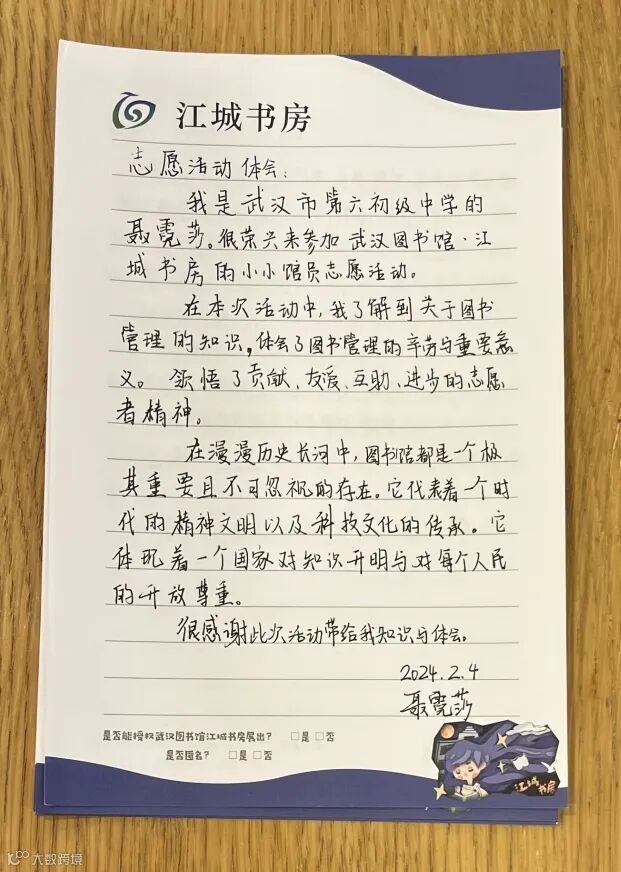 江城书房
志愿活动体会:
我是武汉市第六初级中学的
聂霓莎。很荣兴来参加武汉图书馆·江
城书房的小小馆员志愿活动。
在本次活动中,我了解到关于图书
管理的知识,体会了图书管理的辛劳与重要意
义。领悟了贡献、友爱、互助、进步的志愿
者精神。
在漫漫历史长河中,图书馆都是一个极
其重要且不可忽视的存在。它代表着一个时
代的精神文明以及科技文化的传承。它
体现着一个国家对知识开明与对每个人民
的开放尊重。
很感谢此次活动带给我知识与体会。
2024.2.4
聂霓莎
是否能授权武汉图书馆江城书房展出? □是 □否
是否匿名? □是 □否
江城书房
大数跨境